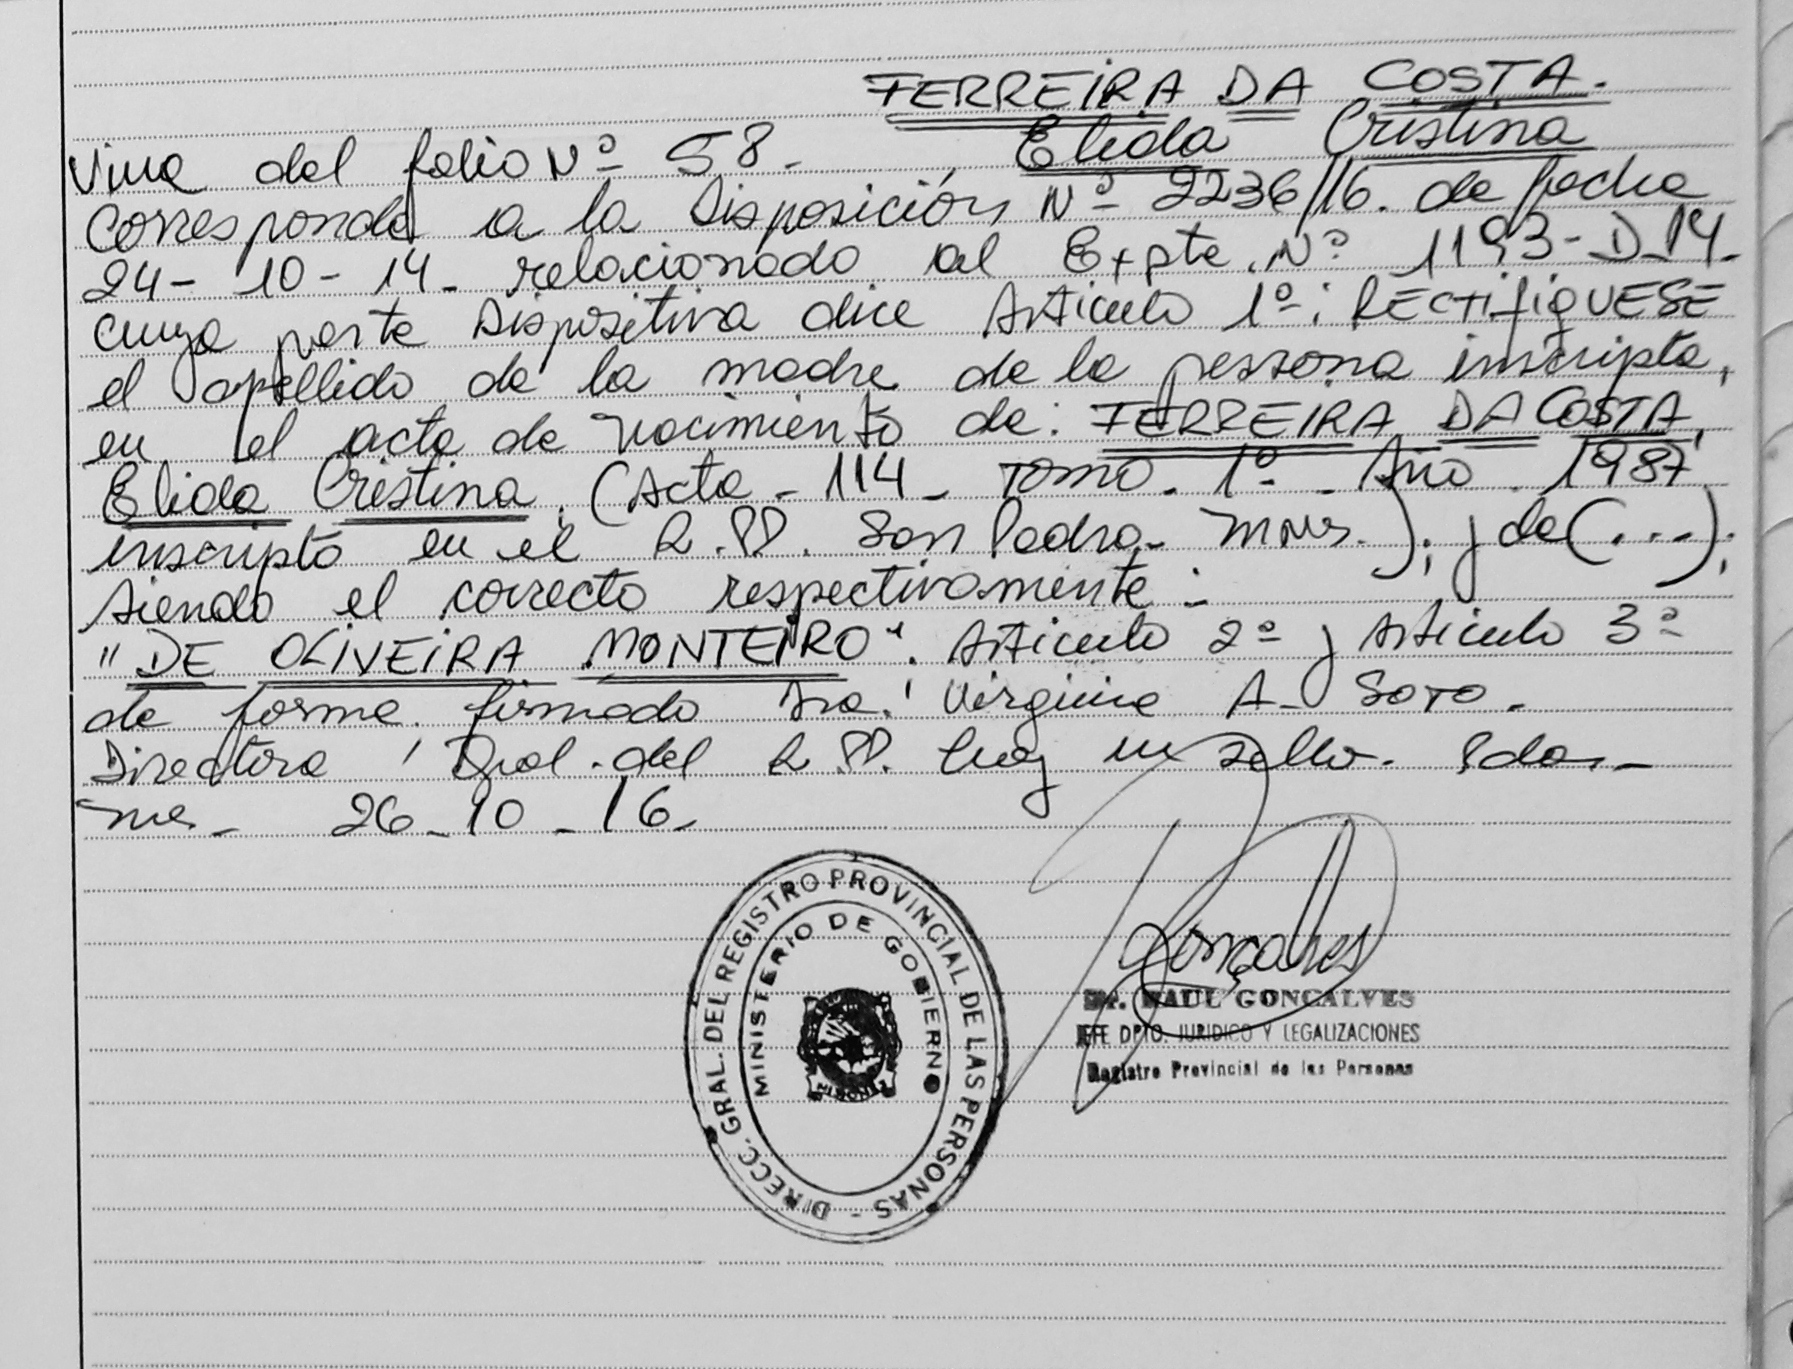 FERREIRA DA COSTA.
Viene del folio Nº 58. Elida Cristina
Corresponde a la Disposición Nº 2236/16. de fecha
24-10-14. relacionado al Expte. Nº 1193-D-14.
cuya parte Dispositiva dice Articulo 1º: RECTIFIQUESE
el apellido de la madre de la persona inscripta,
en el acta de nacimiento de: FERREIRA DA COSTA,
Elida Cristina, (Acta - 114 - Tomo. 1º - Año. 1987
inscripto en el R.PP. San Pedro - Mnes.); y de (...);
siendo el correcto respectivamente:
"DE OLIVEIRA MONTEIRO". Articulo 2º y Articulo 3º
de forma. firmado Dra. Virginia A. SOTO.
Directora Gral. del R.PP. hay un sello. Pdas.-
Mnes. 26-10-16.
DIRECC. GRAL. DEL REGISTRO PROVINCIAL DE LAS PERSONAS -
MINISTERIO DE GOBIERNO
MISIONES
Goncalves
Dr. RAUL GONCALVES
JEFE DPTO. JURIDICO Y LEGALIZACIONES
Registro Provincial de las Personas